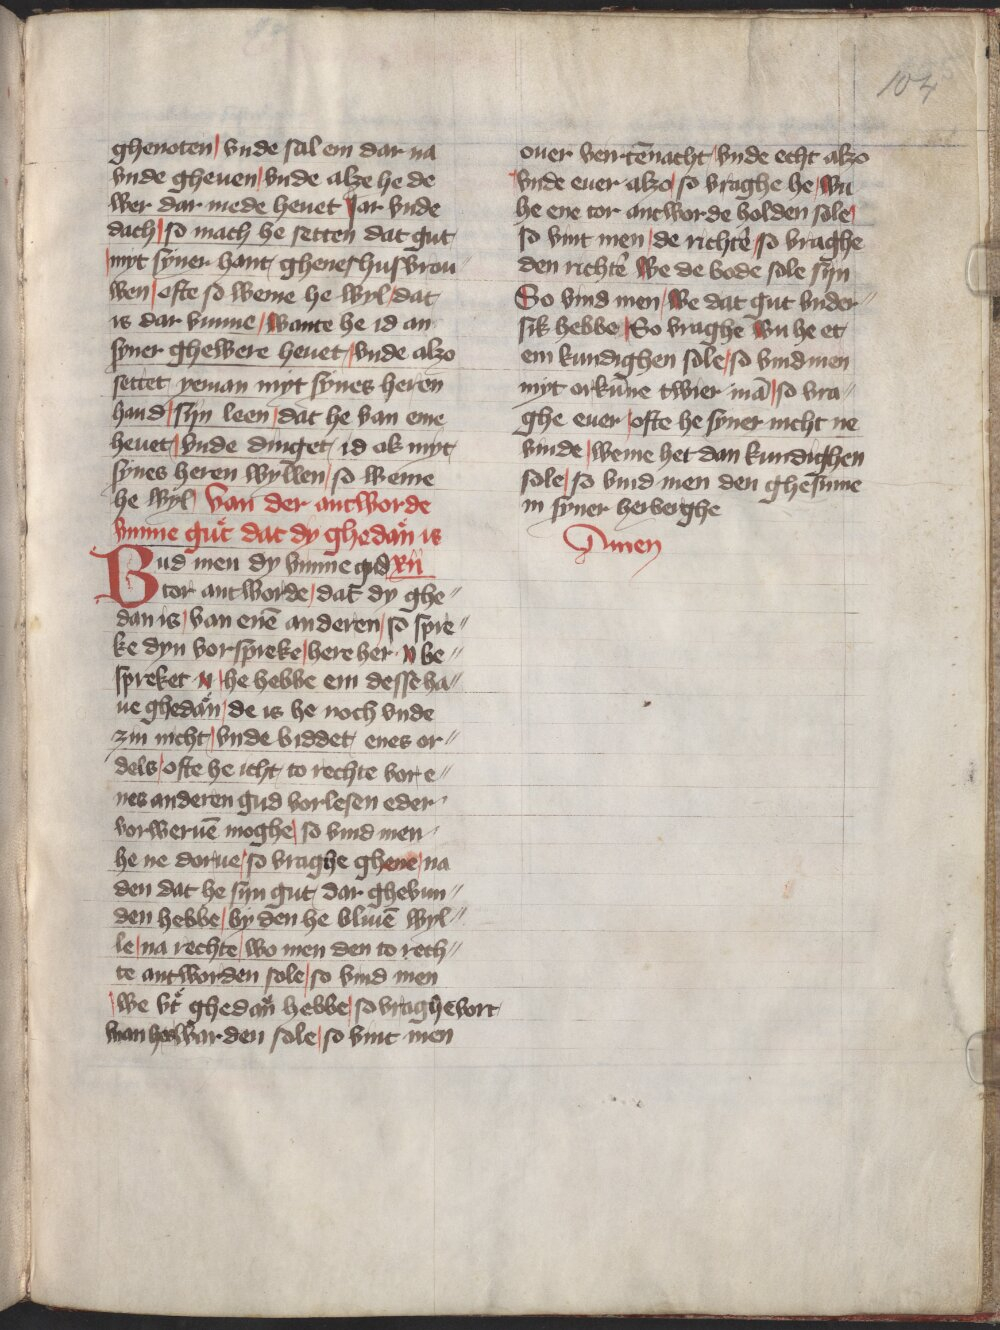 104
ghenoten vnde sal em dar na
vnde gheuen vnde alze he de
wer dar mede heuet Jar vnde
dach so mach he setten dat gut
myt syner hant ghenes husvrou
wen ofte so weme he wyl dat
is dar vmme wante he id an
syner ghewere heuet vnde alzo
settet yeman myt synes heren
hand sijn leen dat he van eme
heuet vnde dinget id ok myt
synes heren wyllen so weme
he wyl Van der antworde
vmme gut dat dy ghedan is
Bud men dy vmme gud xii
tor antworde dat dy ghe〃
dan is van enē anderen so spre〃
ke dyn vorspreke here her N be〃
spreket N he hebbe em desse ha〃
ue ghedan de is he noch vnde
zin nicht vnde biddet enes or〃
dels ofte he icht to rechte vor e〃
nes anderen gud vorlesen eder
vorweruē moghe so vind men
he ne dorue so vraghe ghene na
den dat he sijn gut dar gheuun〃
den hebbe by den he bliuē wyl〃
le na rechte wo men den to rech〃
te antworden sole so vind men
we vt ghedan hebbe so vraghe vort
wan he warden sole so vint men
ouer vertēnacht vnde echt alzo
vnde euer alzo so vraghe he wu
he ene tor antworde holden sole
so vint men de richtē so vraghe
den richtē we de bode sole sijn
So vind men we dat gut vnder〃
sik hebbe So vraghe wu he et
em kundighen sole so vind men
myt orkūne twier mā so vra〃
ghe euer ofte he syner nicht ne
vinde weme het dan kundighen
sole so vind men den ghesinne
in syner herberghe
Amen